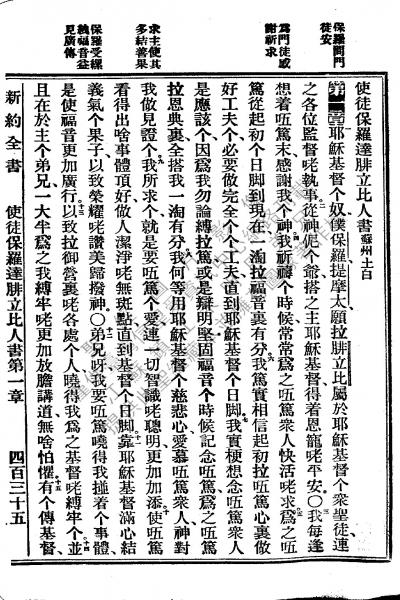 保羅問門
徒安
爲門徒感
謝祈求
求主使其
多結善果
保羅受縲
絏福音益
見廣傳
使徒保羅達腓立比人書 蘇州土白
第一章 耶穌基督个奴僕保羅提摩太願拉腓立比屬於耶穌基督个衆聖徒連
之各位監督咾執事從神伲个爺搭之主耶穌基督得着恩寵咾平安〇我每逢
想着㕶篤末感謝我个神我祈禱个時候常常爲之㕶篤衆人快活咾求爲之㕶
篤從起初个日脚到現在一淘拉福音裏有分我篤實相信起初拉㕶篤心裏做
好工夫个必要做完全个个工夫直到耶穌基督个日脚我實梗想念㕶篤衆人
是應該个因爲我勿論縛拉篤或是辯明堅固福音个時候記念㕶篤爲之㕶篤
拉恩典裏全搭我一淘有分我何等用耶穌基督个慈悲心愛慕㕶篤衆人神對
我做見證个我所求个就是要㕶篤个愛連一切智識咾聰明更加加添使㕶篤
看得出啥事體頂好做人潔淨咾無斑點直到基督个日脚靠耶穌基督滿心結
義氣个果子以致榮耀咾讚美歸撥神〇弟兄呀我要㕶篤曉得我撞着个事體
是使福音更加廣行以致拉御營裏咾各處个人曉得我爲之基督咾縛牢个並
且在於主个弟兄一大半爲之我縛牢咾更加放膽講道無啥怕懼有个傳基督
新約全書 使徒保羅達腓立比人書第一章 四百三十五